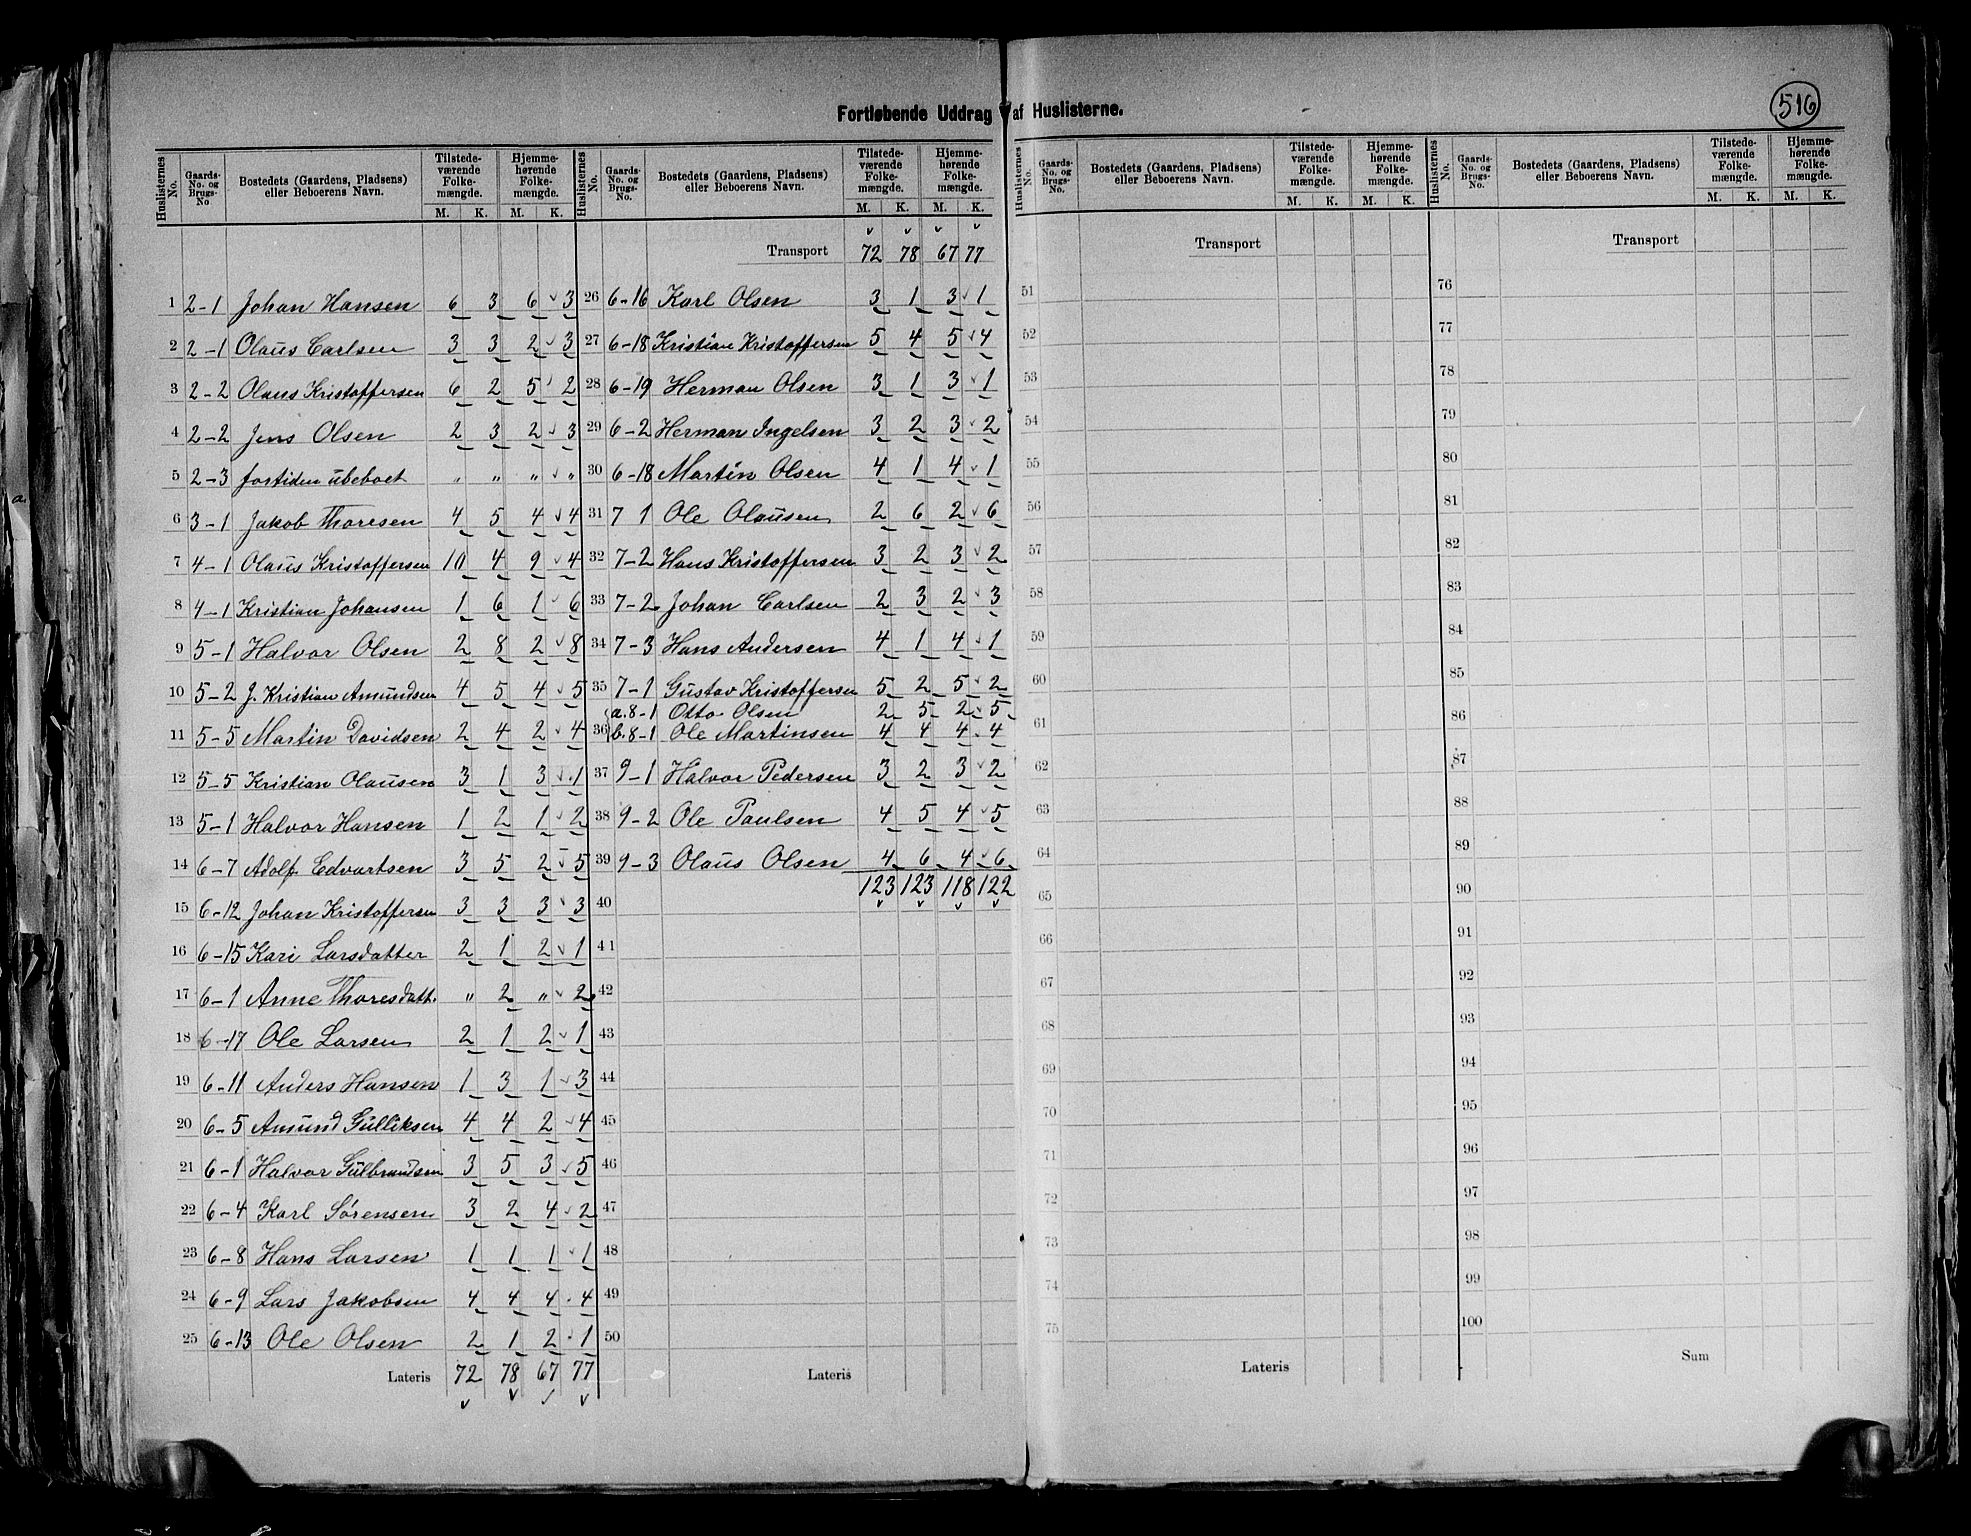 516
Fortløbende Uddrag af Huslisterne.
Huslisternes No. | Gaards-No. og Brugs-No | Bostedets (Gaardens, Pladsens) eller Beboerens Navn. | Tilstedeværende Folkemængde. M. K. | Hjemmehørende Folkemængde. M. K.
1 2-1 Johan Hansen 6 3 6 3
2 2-1 Olaus Carlsen 3 3 2 3
3 2-2 Olaus Kristoffersen 6 2 5 2
4 2-2 Jens Olsen 2 3 2 3
5 2-3 fortiden ubeboet " " " "
6 3-1 Jakob Thoresen 4 5 4 4
7 4-1 Olaus Kristoffersen 10 4 9 4
8 4-1 Kristian Johansen 1 6 1 6
9 5-1 Halvor Olsen 2 8 2 8
10 5-2 J. Kristian Amundsen 4 5 4 5
11 5-5 Martin Davidsen 2 4 2 4
12 5-5 Kristian Olausen 3 1 3 1
13 5-1 Halvor Hansen 1 2 1 2
14 6-7 Adolf Edvartsen 3 5 2 5
15 6-12 Johan Kristoffersen 3 3 3 3
16 6-15 Kari Larsdatter 2 1 2 1
17 6-1 Anne Thoresdatt. " 2 " 2
18 6-17 Ole Larsen 2 1 2 1
19 6-11 Anders Hansen 1 3 1 3
20 6-5 Amund Gulliksen 4 4 2 4
21 6-1 Halvor Gulbrandsen 3 5 3 5
22 6-4 Karl Sørensen 3 2 4 2
23 6-8 Hans Larsen 1 1 1 1
24 6-9 Lars Jakobsen 4 4 4 4
25 6-13 Ole Olsen 2 1 2 1
Lateris 72 78 67 77
Huslisternes No. | Gaards-No. og Brugs-No. | Bostedets (Gaardens, Pladsens) eller Beboerens Navn. | Tilstedeværende Folkemængde. M. K. | Hjemmehørende Folkemængde. M. K.
Transport 72 78 67 77
26 6-16 Karl Olsen 3 1 3 1
27 6-18 Kristian Kristoffersen 5 4 5 4
28 6-19 Herman Olsen 3 1 3 1
29 6-2 Herman Ingelsen 3 2 3 2
30 6-18 Martin Olsen 4 1 4 1
31 7 1 Ole Olausen 2 6 2 6
32 7-2 Hans Kristoffersen 3 2 3 2
33 7-2 Johan Carlsen 2 3 2 3
34 7-3 Hans Andersen 4 1 4 1
35 7-1 Gustav Kristoffersen 5 2 5 2
36 a. 8-1 Otto Olsen 2 5 2 5
b. 8-1 Ole Martinsen 4 4 4 4
37 9-1 Halvor Pedersen 3 2 3 2
38 9-2 Ole Paulsen 4 5 4 5
39 9-3 Olaus Olsen 4 6 4 6
123 123 118 122
40
41
42
43
44
45
46
47
48
49
50
Lateris
Huslisternes No. | Gaards-No. og Brugs-No. | Bostedets (Gaardens, Pladsens) eller Beboerens Navn. | Tilstedeværende Folkemængde. M. K. | Hjemmehørende Folkemængde. M. K.
Transport
51
52
53
54
55
56
57
58
59
60
61
62
63
64
65
66
67
68
69
70
71
72
73
74
75
Lateris
Huslisternes No. | Gaards-No. og Brugs-No. | Bostedets (Gaardens, Pladsens) eller Beboerens Navn. | Tilstedeværende Folkemængde. M. K. | Hjemmehørende Folkemængde. M. K.
Transport
76
77
78
79
80
81
82
83
84
85
86
87
88
89
90
91
92
93
94
95
96
97
98
99
100
Sum